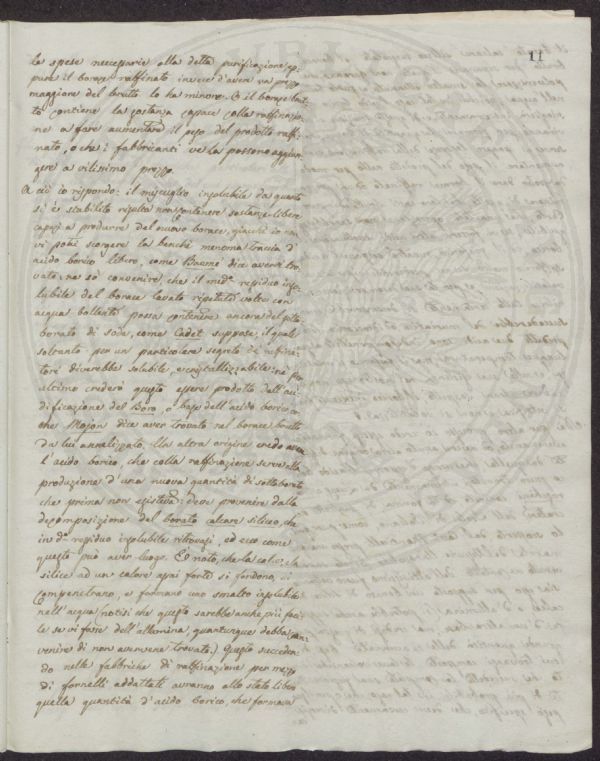 11
le spese neccessarie alla detta purificazione, op-
pure il borace raffinato invece d'aver un prezzo
maggiore del brutto lo ha minore. O il borace brut-
to contiene la sostanza capace colla raffinazio-
ne a fare aumentare il peso del prodotto raffi-
nato, o che i fabbricanti ve la possono aggiun-
gere a vilissimo prezzo.
A ciò io rispondo: il miscuglio insolubile da quanto
si è stabilito risulta non contenere sostanze libere
capaci a produrre del nuovo borace, giacchè io non
vi potei scorgere la benchè menoma traccia d'
acido borico libero, come Baumé dice avervi tro-
vato; ne so convenire, che il med.º residuo inso-
lubile del borace lavato ripetute volte con
acqua bollente possa contenere ancora del
borato di soda, come Cadet suppose; il quale
soltanto per un particolare segreto de' raffina-
tori divarebbe solubile, e cristallizzabile: ne per
ultimo crederò questo essere prodotto dell'aci-
dificazione del Boro, o base dell'acido borico
che Mojon dice aver trovato nel borace brutto
da lui annalizzato. Un altra origine credo avere
l'acido borico, che colla raffinazione serve alla
produzione d'una nuova quantità di sottoborato
che prima non esisteva: deve provenire dalla
decomposizione del borato calcare siliceo, che
in d.º residuo insolubile ritrovasi, ed ecco come
questo può aver luogo. È noto, che la calce, e la
silice ad un calore assai forte si fondono, si
compenetrano, e formano uno smalto insolubile
nell'acqua (notisi che questo sarebbe anche più faci-
le se vi fosse dell'allumina, quantunque debba con-
venire di non avervene trovata.) Questo succeden-
do nelle fabbriche di raffinazione per mezzo
di fornelli addattati avranno allo stato libero
quella quantità d'acido borico, che formava